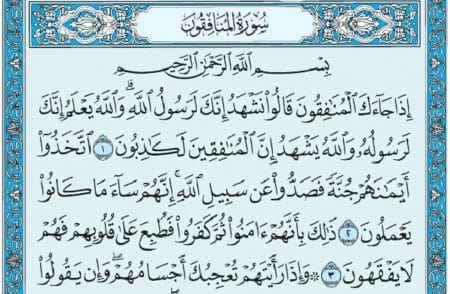 سُورَةُ الْمُنَافِقُونَ
بِسْمِ اللَّهِ الرَّحْمَٰنِ الرَّحِيمِ
إِذَا جَاءَكَ الْمُنَافِقُونَ قَالُوا نَشْهَدُ إِنَّكَ لَرَسُولُ اللَّهِ ۗ وَاللَّهُ يَعْلَمُ إِنَّكَ
لَرَسُولُهُ وَاللَّهُ يَشْهَدُ إِنَّ الْمُنَافِقِينَ لَكَاذِبُونَ ١ اتَّخَذُوا
أَيْمَانَهُمْ جُنَّةً فَصَدُّوا عَن سَبِيلِ اللَّهِ ۚ إِنَّهُمْ سَاءَ مَا كَانُوا
يَعْمَلُونَ ٢ ذَٰلِكَ بِأَنَّهُمْ ءَامَنُوا ثُمَّ كَفَرُوا فَطُبِعَ عَلَىٰ قُلُوبِهِمْ فَهُمْ
لَا يَفْقَهُونَ ٣ ۞ وَإِذَا رَأَيْتَهُمْ تُعْجِبُكَ أَجْسَامُهُمْ ۖ وَإِن يَقُولُوا